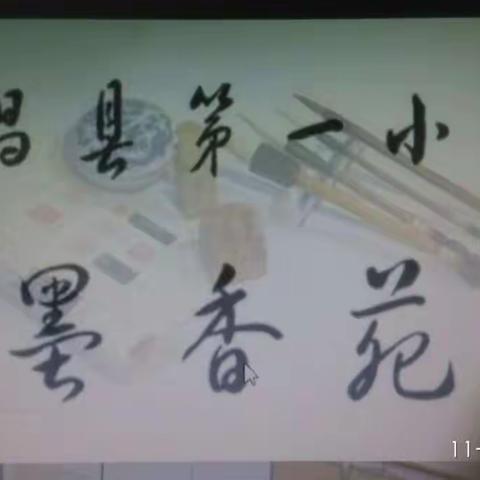 昌县第一小
墨香苑
11-